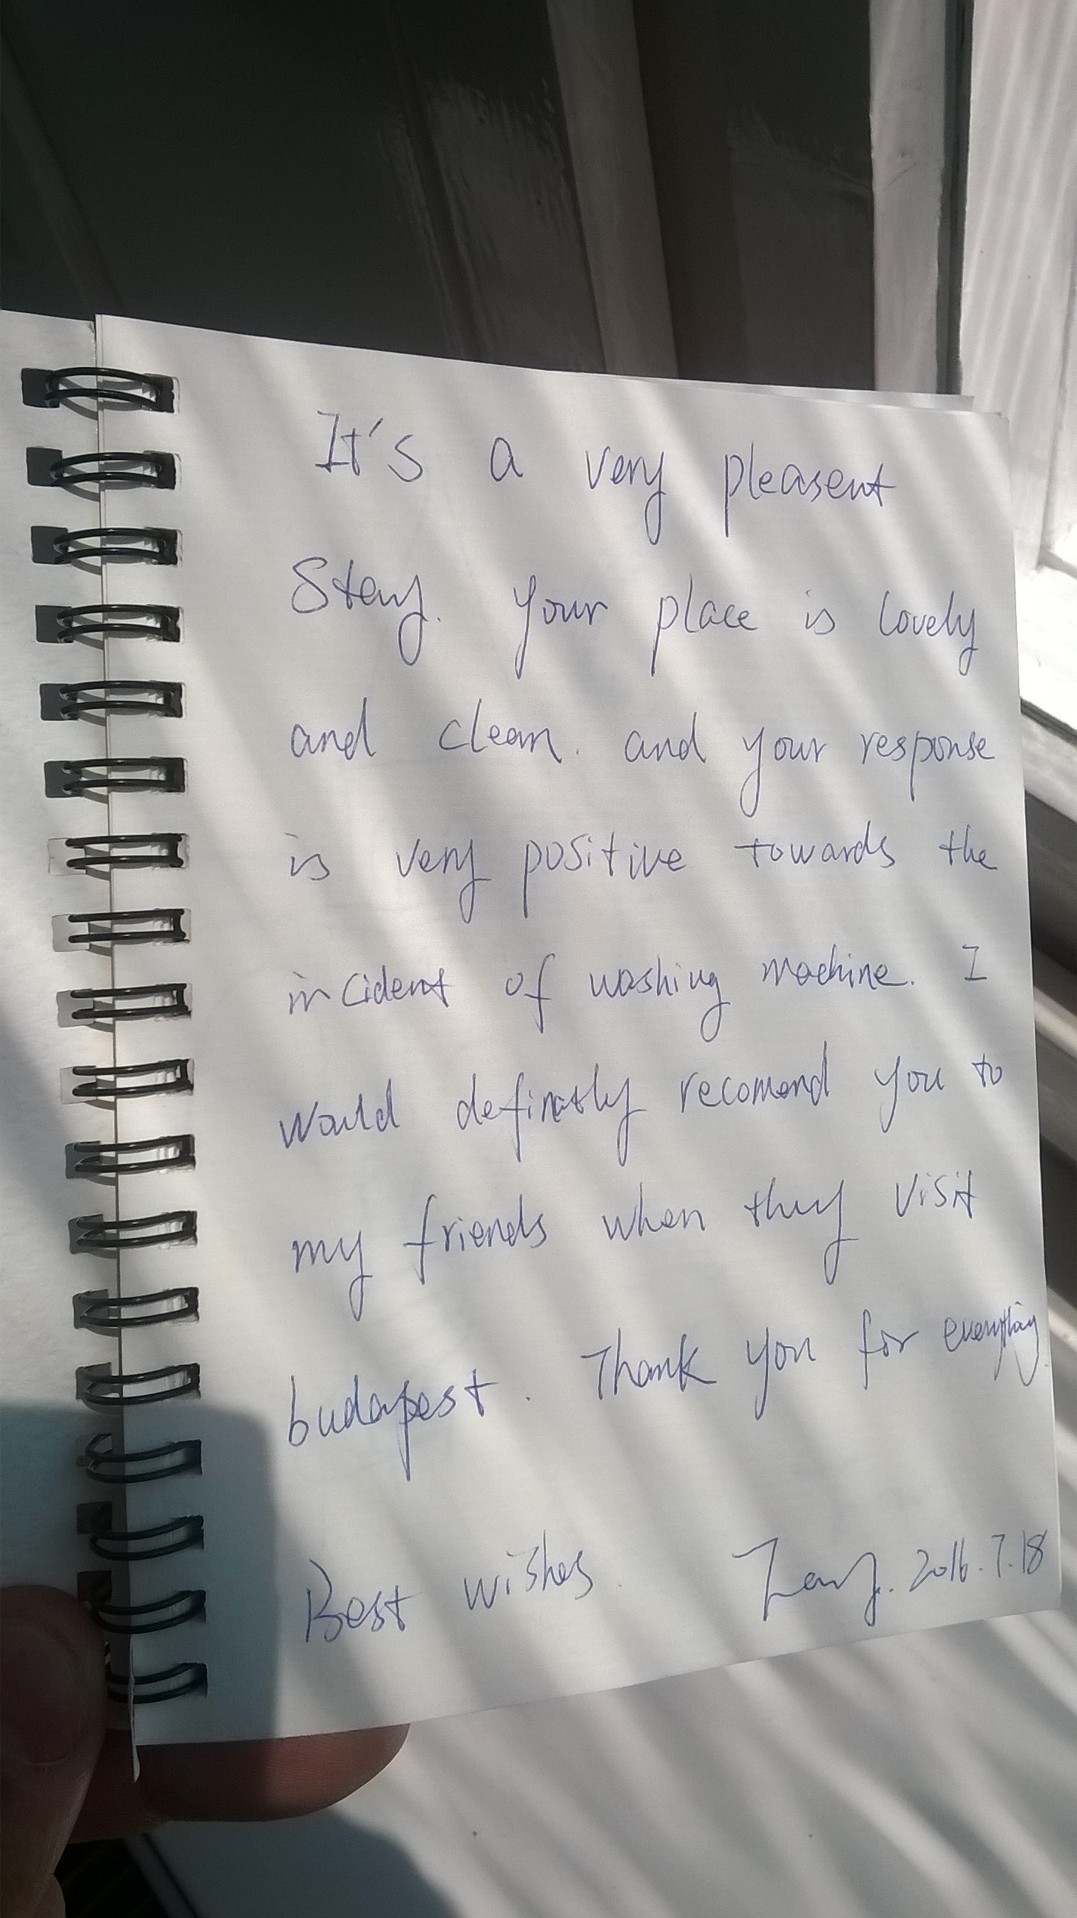 It's a very pleasent
Stay. Your place is lovely
and clean. and your response
is very positive towards the
incident of washing machine. I
would definatly recomend you to
my friends when they visit
budapest. Thank you for everything.
Best wishes. 2016.7.18